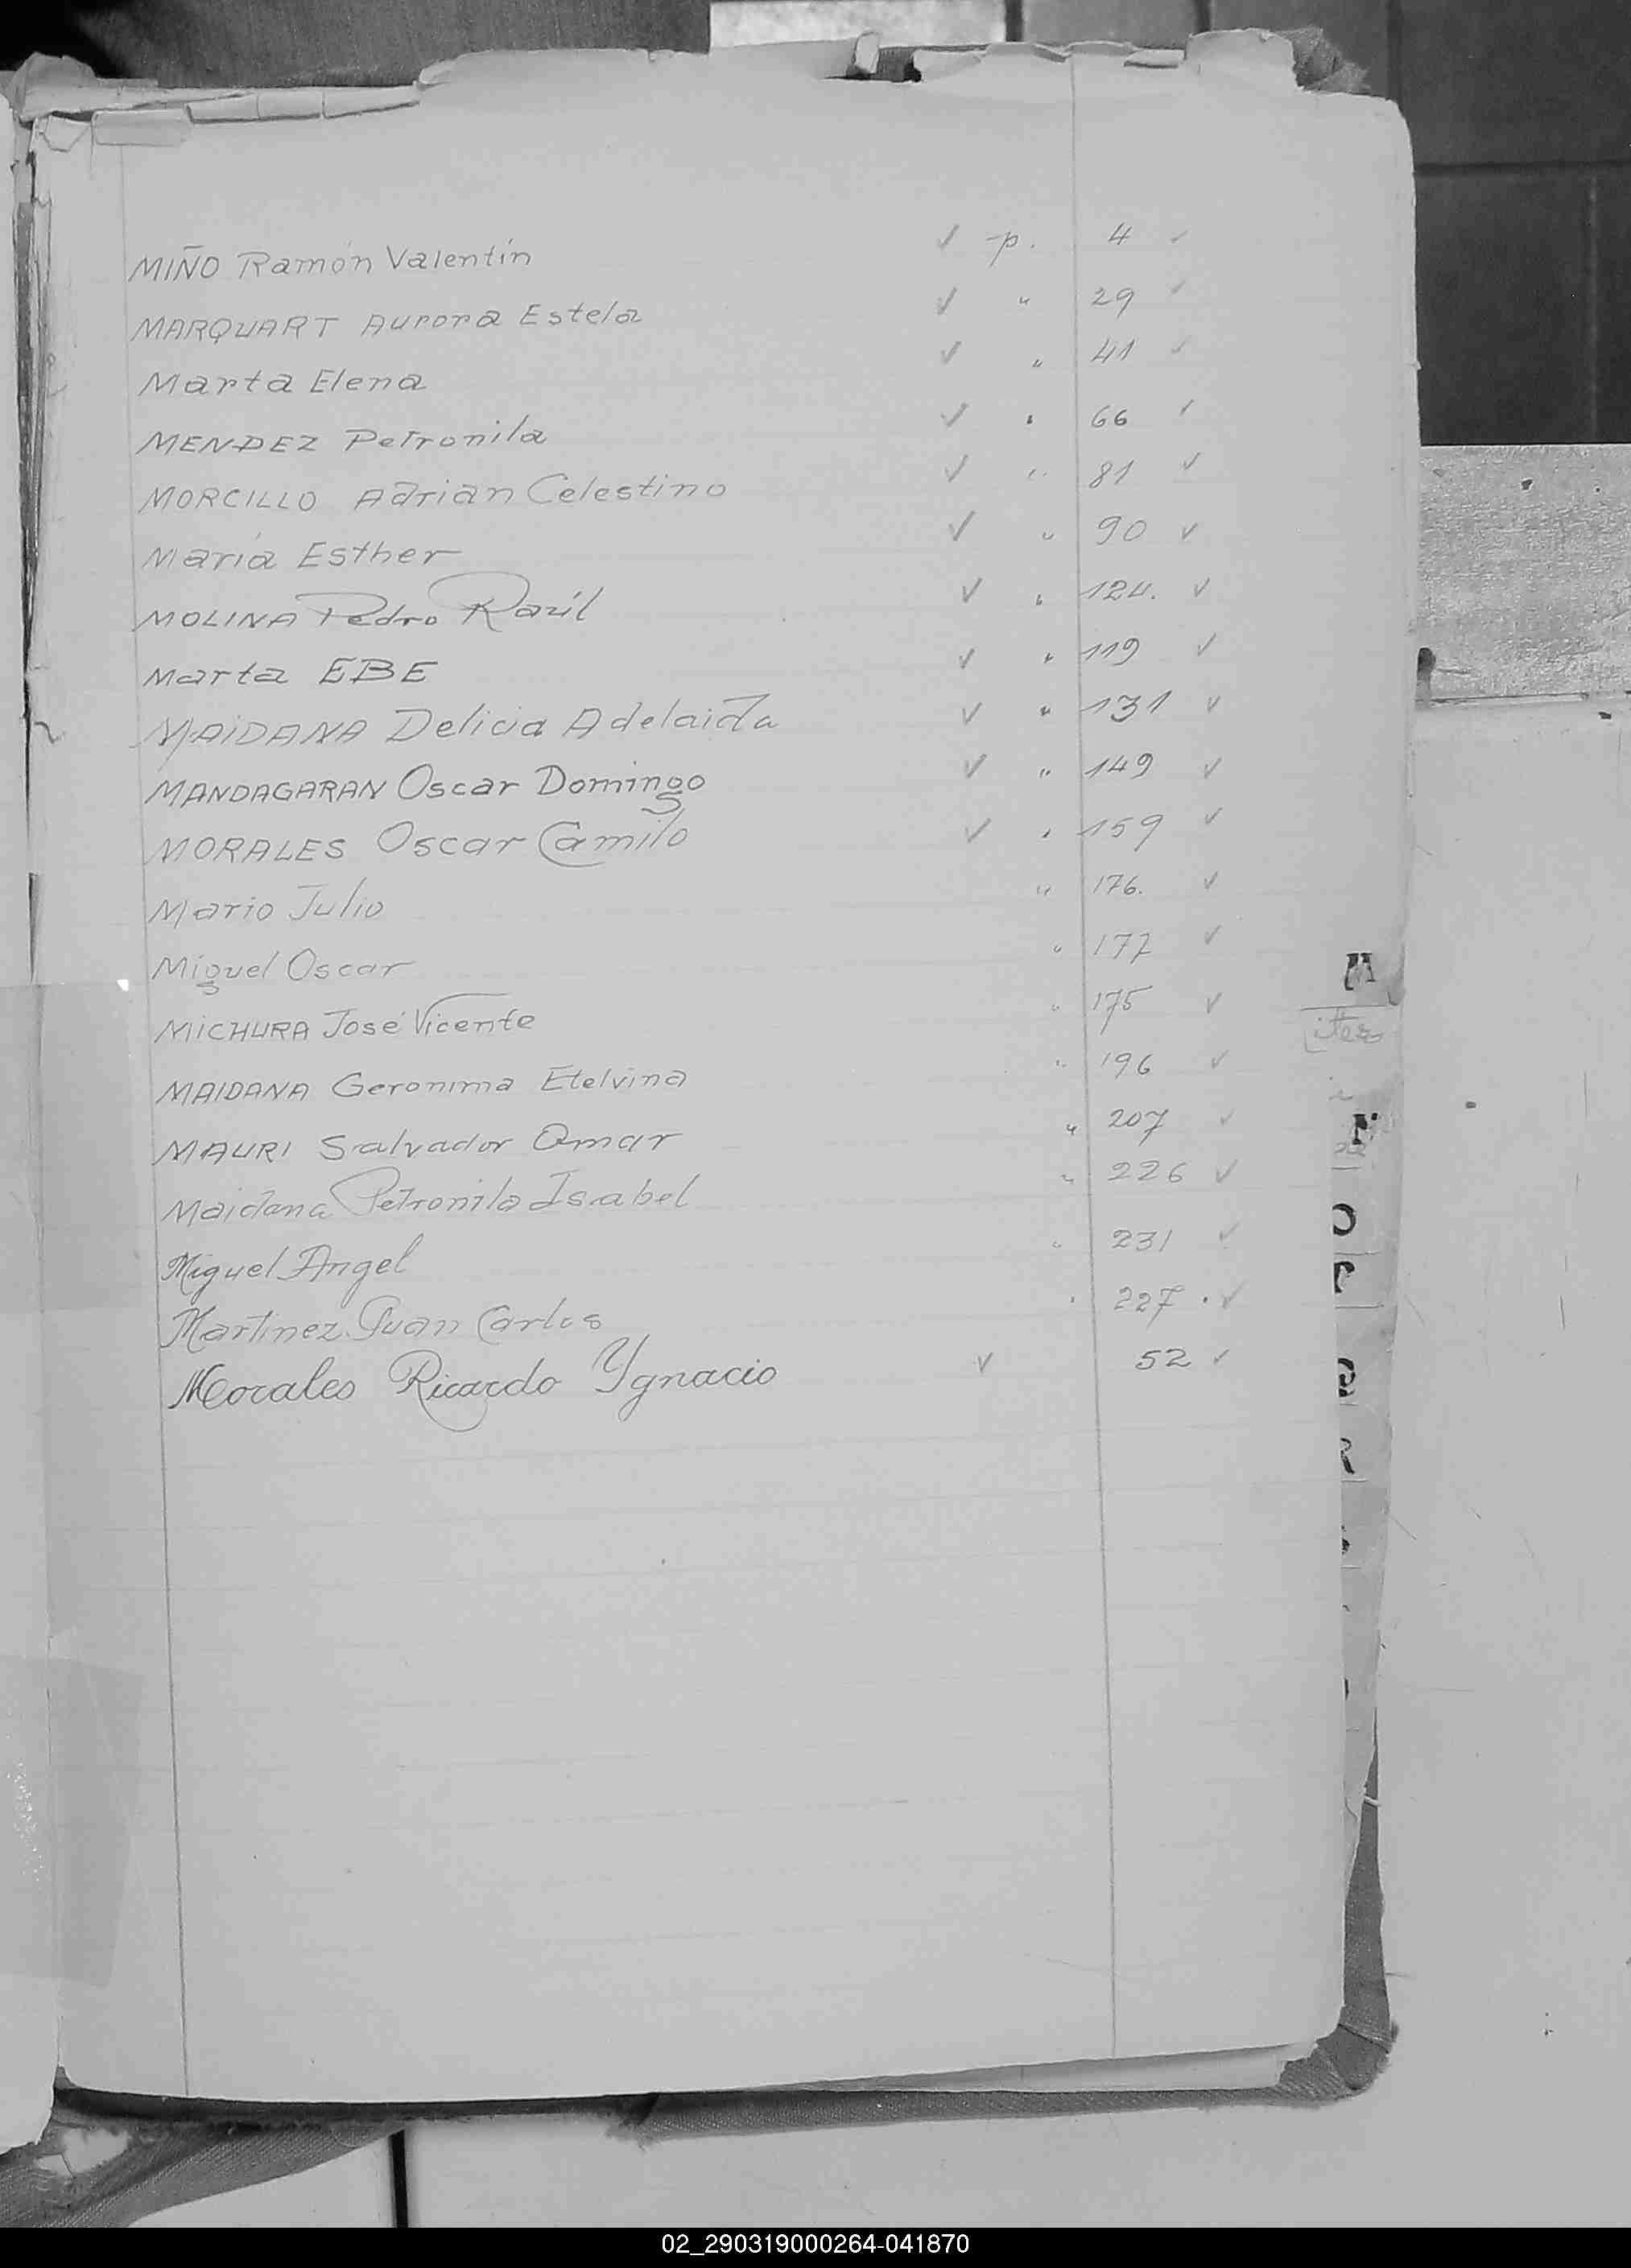 MIÑO Ramón Valentín ✓ p. 4 ✓
MARQUART Aurora Estela ✓ " 29 ✓
Marta Elena ✓ " 41 ✓
MENDEZ Petronila ✓ " 66 ✓
MORCILLO Adrian Celestino ✓ " 81 ✓
María Esther ✓ " 90 ✓
MOLINA Pedro Raúl ✓ " 124. ✓
Marta EBE ✓ " 119 ✓
MAIDANA Delicia Adelaida ✓ " 131 ✓
MANDAGARAN Oscar Domingo ✓ " 149 ✓
MORALES Oscar Camilo ✓ " 159 ✓
Mario Julio " 176. ✓
Miguel Oscar " 177 ✓
MICHURA José Vicente " 175 ✓
MAIDANA Geronima Etelvina " 196 ✓
MAURI Salvador Omar " 207 ✓
Maidana Petronila Isabel " 226 ✓
Miguel Angel " 231 ✓
Martinez Juan Carlos " 227 . ✓
Morales Ricardo Ygnacio ✓ 52 ✓
M
N
O
P
Q
R
02_290319000264-041870